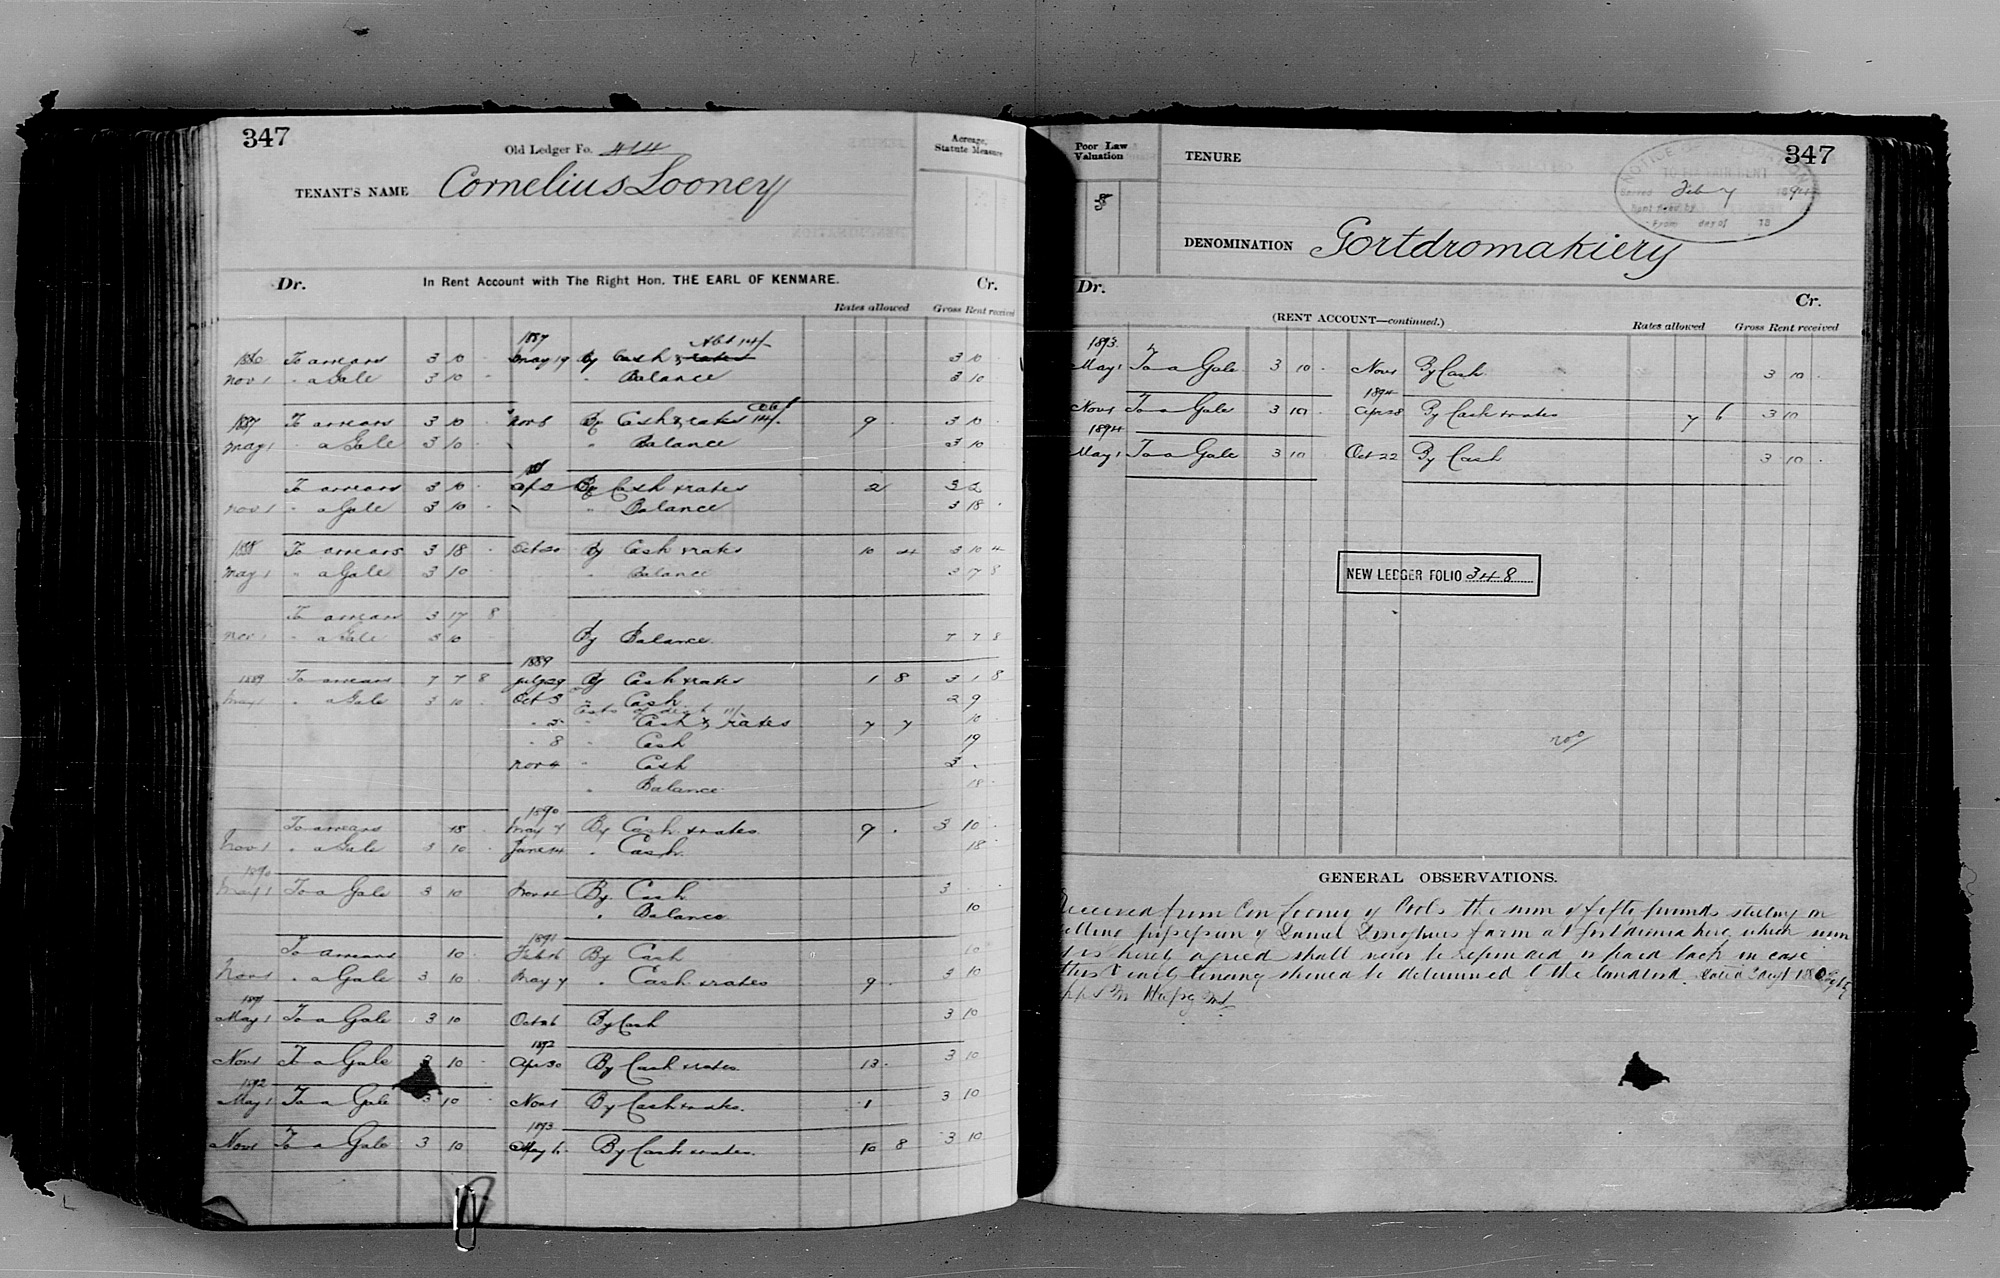 347
Old Ledger Fo. 414
Acreage, Statute Measure
TENANT'S NAME Cornelius Looney
Dr. In Rent Account with The Right Hon. THE EARL OF KENMARE. Cr.
Rates allowed Gross Rent received
1887
1886 To arrears 3 10 - May 19 By Cash & rates 3 10
Nov 1 " a Gale 3 10 - " Balance 3 10
1887 To arrears 3 10 Nov 8 By Cash & rates 14/- 9 - 3 10
May 1 " a Gale 3 10 - " Balance 3 10
To arrears 3 10 - Ap 2 By Cash & rates 2 3 2
Nov 1 " a Gale 3 10 - " Balance 3 18 -
1888 To arrears 3 18 - Oct 20 By Cash & rates 10 4 3 10 4
May 1 " a Gale 3 10 - " Balance 3 17 8
To arrears 3 17 8
Nov 1 " a Gale 3 10 By Balance 7 7 8
1889
1889 To arrears 7 7 8 July 29 By Cash & rates 1 8 3 1 8
May 1 " a Gale 3 10 - Oct 3 " Cash 2 9
" 5 " Cash & rates 7 7 10 -
" 8 " Cash 19
Nov 4 " Cash 3 -
" Balance 18 -
1890
To arrears 18 - May 7 By Cash & rates 9 - 3 10 -
Nov 1 " a Gale 3 10 - June 14 " Cash 18 -
1890
May 1 To a Gale 3 10 - Nov 4 By Cash 3
" Balance 10
1891
To arrears 10 - Feb 16 By Cash 10
Nov 1 " a Gale 3 10 - May 7 " Cash & rates 9 - 3 10
1891
May 1 To a Gale 3 10 Oct 26 By Cash 3 10
1892
Nov 1 To a Gale 3 10 - Apr 30 By Cash & rates 13 - 3 10
1892
May 1 To a Gale 3 10 - Nov 1 By Cash & rates. 1 3 10
1893
Nov 1 To a Gale 3 10 May 6 By Cash & rates. 10 8 3 10
Poor Law Valuation
TENURE
347
Feb 7
DENOMINATION Gortdromakiery
Dr. (RENT ACCOUNT—continued.) Cr.
Rates allowed Gross Rent received
1893
May 1 To a Gale 3 10 - Nov 1 By Cash 3 10 -
1894
Nov 1 To a Gale 3 10 - Apr 28 By Cash & rates 7 6 3 10
1894
May 1 To a Gale 3 10 - Oct 22 By Cash 3 10 -
NEW LEDGER FOLIO 348
GENERAL OBSERVATIONS.
Received from Con Looney of the sum of fifty pounds sterling on
possession of Daniel Donoghues farm at Gortdromakiery which sum
it is hereby agreed shall never be refunded or paid back in case
tenancy should be determined by the landlord.